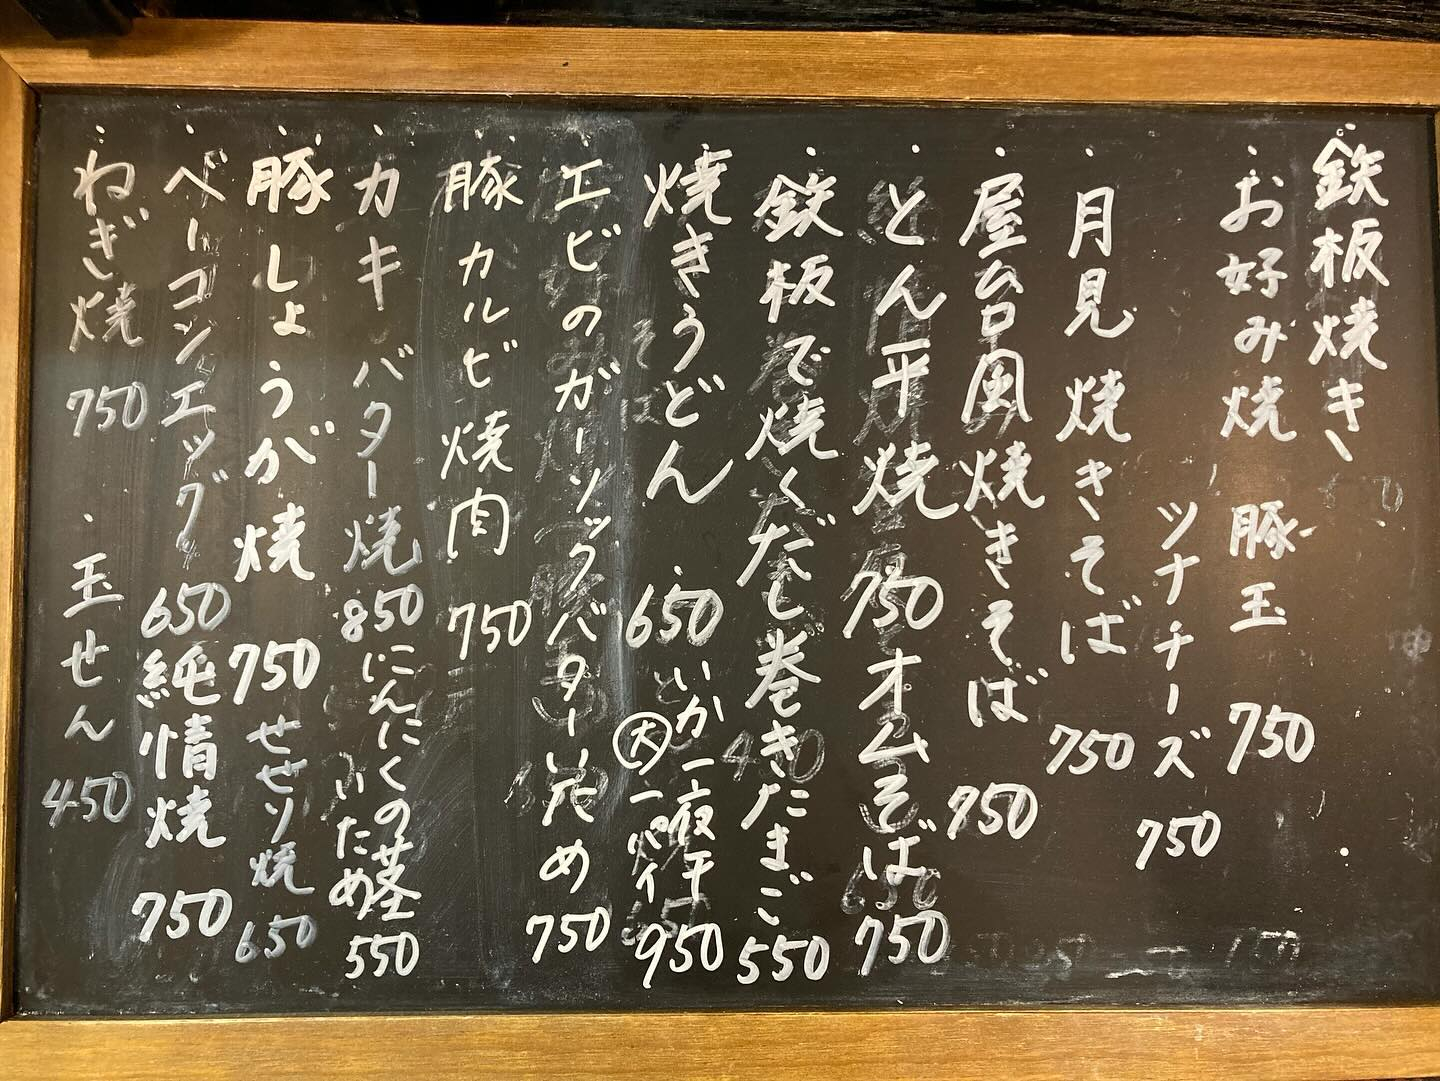 鉄板焼き
お好み焼 豚玉 750
ツナチーズ 750
月見焼きそば 750
屋台風焼きそば 750
とん平焼 750
オムそば 750
鉄板で焼くだし巻きたまご 550
焼きうどん 650
いか一夜干
大一パイ 950
エビのガーリックバターいため 750
豚カルビ焼肉 750
カキバター焼 850
にんにくの茎
いため 550
豚しょうが焼 750
せせり焼 650
ベーコンエッグ 650
純情焼 750
ねぎ焼 750
玉せん 450